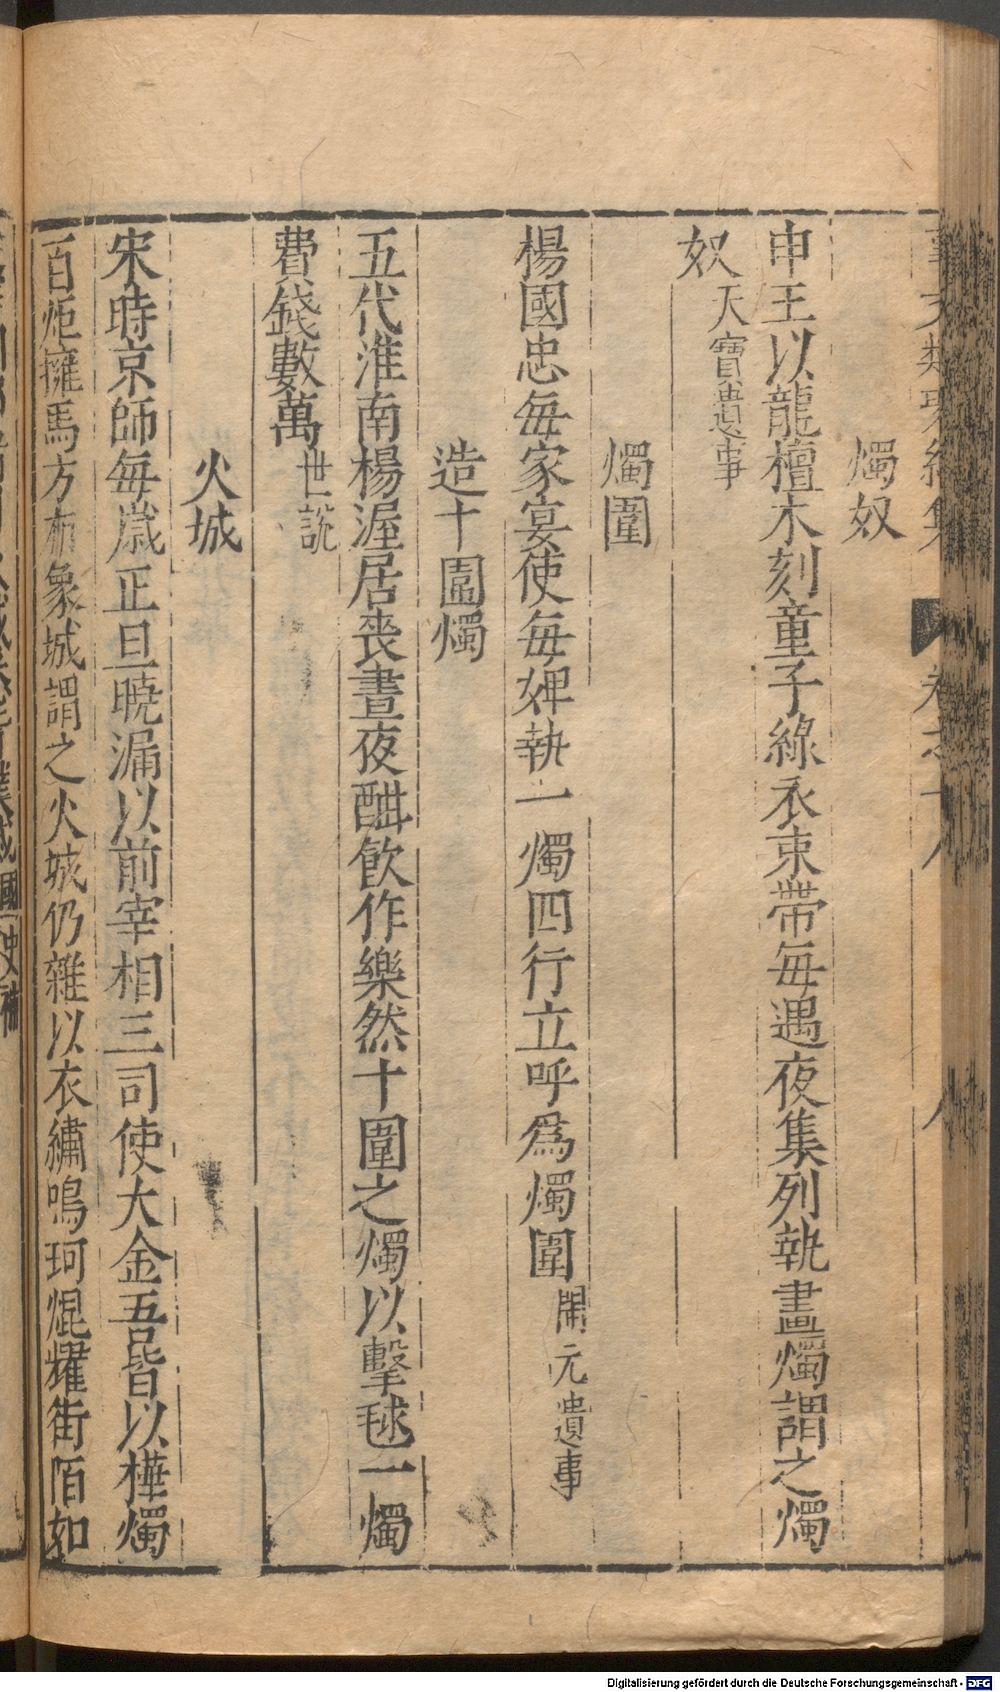 事文類聚續集 卷之十八 八
燭奴
申王以龍檀木刻童子綠衣束帶每遇夜集列執畫燭謂之燭
奴天寶遺事
燭圍
楊國忠每家宴使每婢執一燭四行立呼爲燭圍開元遺事
造十圍燭
五代淮南楊渥居喪晝夜酣飲作樂然十圍之燭以擊毬一燭
費錢數萬世說
火城
宋時京師每歲正旦曉漏以前宰相三司使大金五皆以樺燭
百炬擁馬方布象城謂之火城仍雜以衣繡鳴珂焜耀街陌如
國史補
Digitalisierung gefördert durch die Deutsche Forschungsgemeinschaft - DFG